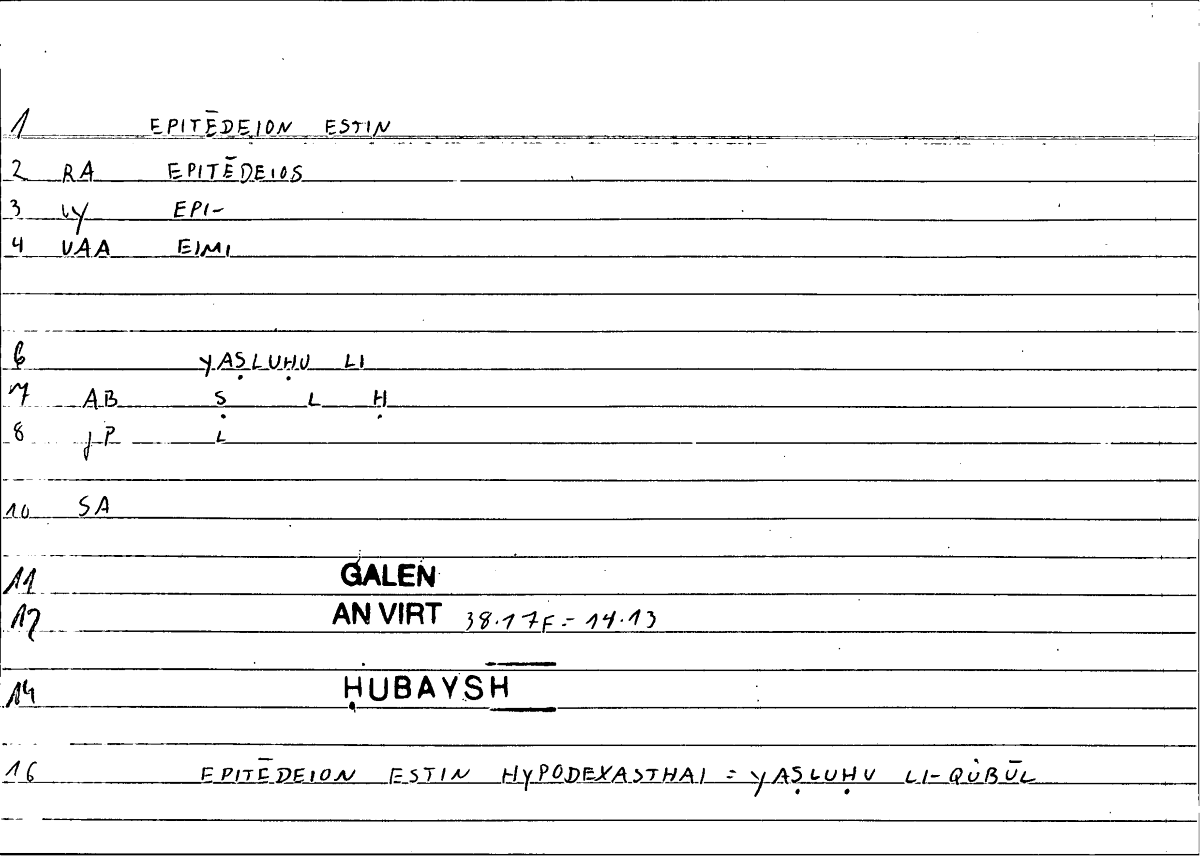 1 EPITĒDEION ESTIN
2 RA EPITĒDEIOS
3 VY EPI-
4 VAA EIMI
6 YAṢLUḤU LI
7 AB Ṣ L Ḥ
8 JP L
10 SA
11 GALEN
12 AN VIRT 38.17F = 14.13
14 ḤUBAYSH
16 EPITĒDEION ESTIN HYPODEXASTHAI = YAṢLUḤU LI-QUBŪL